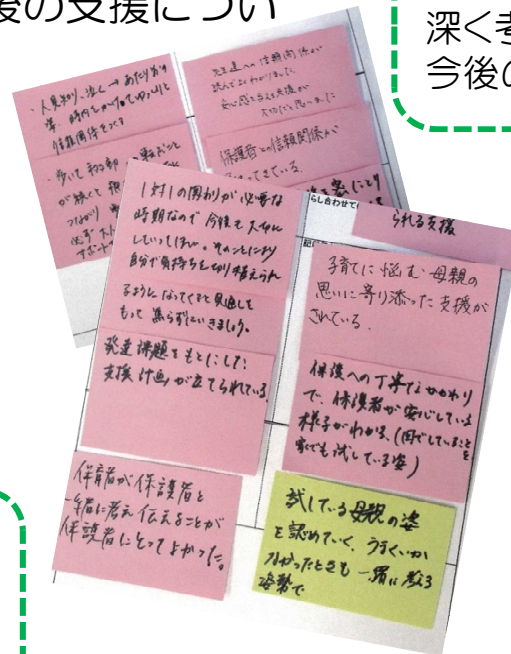 後の支援につい
深く考
今後の
・人見知り、泣く→あたりまえ
等、時間をかけてゆっくりと
信頼関係をつくる
・歩いて
が続くて
つながり
必ず
サポート
先生達への信頼関係が
読んでよくわかりました
安心感を与える支援が
大切だと思いました
保護者との信頼関係が
できている。
らし合わせて
られる支援
1対1の関わりが必要な
時期なので今後も大切に
していってほしい。そのことにより
自分で気持ちを切り替えられ
るようになってくると見通しを
もって焦らずにいきましょう。
発達課題をもとにした
支援計画が立てられている
保育者が保護者と
一緒に考え伝えることが
保護者にとってよかった。
子育てに悩む母親の
思いに寄り添った支援が
されている。
保護への丁寧なかかわり
で、保護者が安心している
様子がわかる。(園でしていることを
家でも試している姿)
試している母親の姿
を認めていく、うまくいか
なかったときも一緒に考える
姿勢で